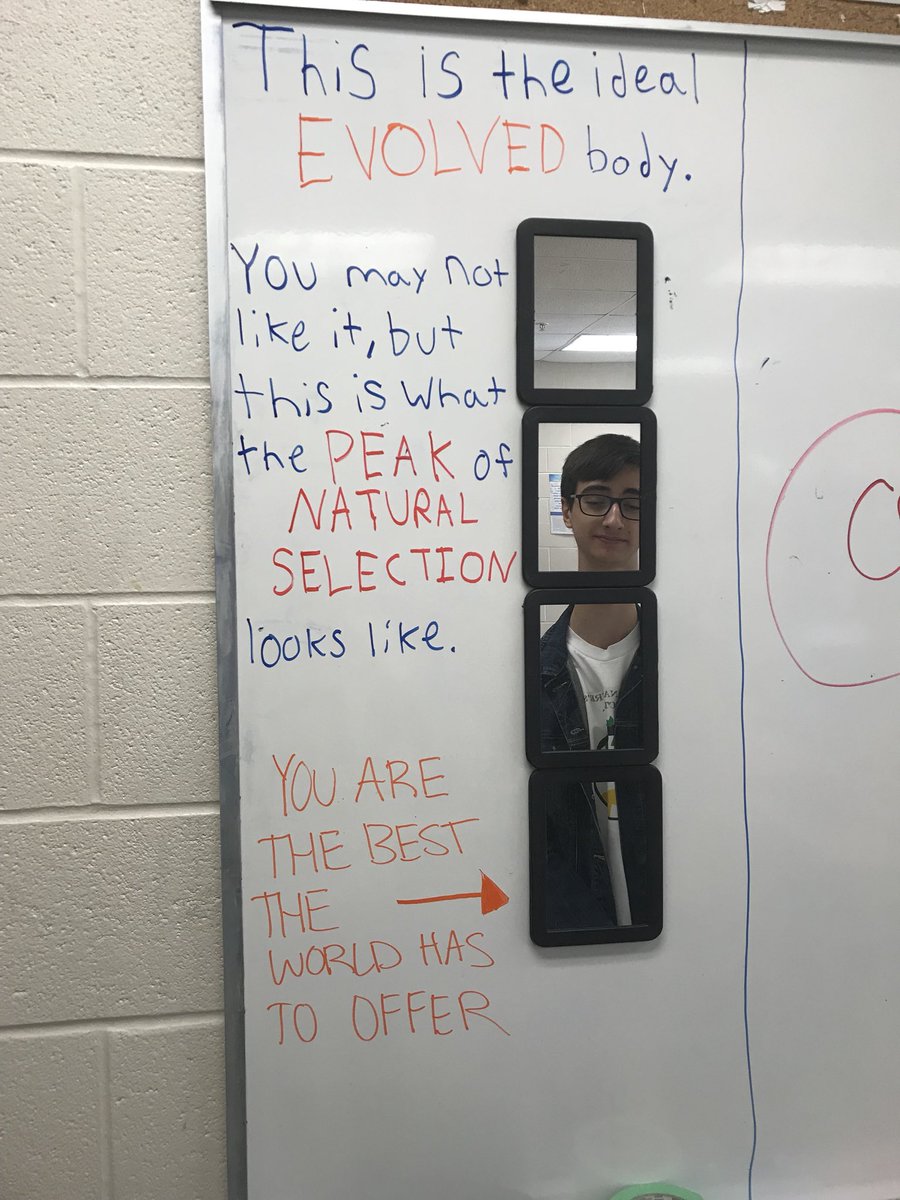 This is the ideal
EVOLVED body.
You may not
like it, but
this is what
the PEAK of
NATURAL
SELECTION
looks like.
YOU ARE
THE BEST
THE
WORLD HAS
TO OFFER